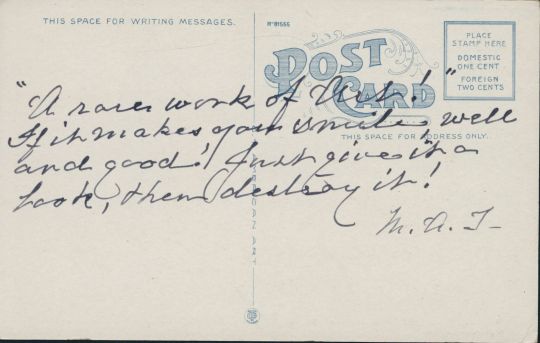 THIS SPACE FOR WRITING MESSAGES.
POST CARD
PLACE
STAMP HERE
DOMESTIC
ONE CENT
FOREIGN
TWO CENTS
THIS SPACE FOR ADDRESS ONLY.
"A rare work of Art!"
If it makes you smile, well
and good! Just give it a
look, then destroy it!
M. A. T-